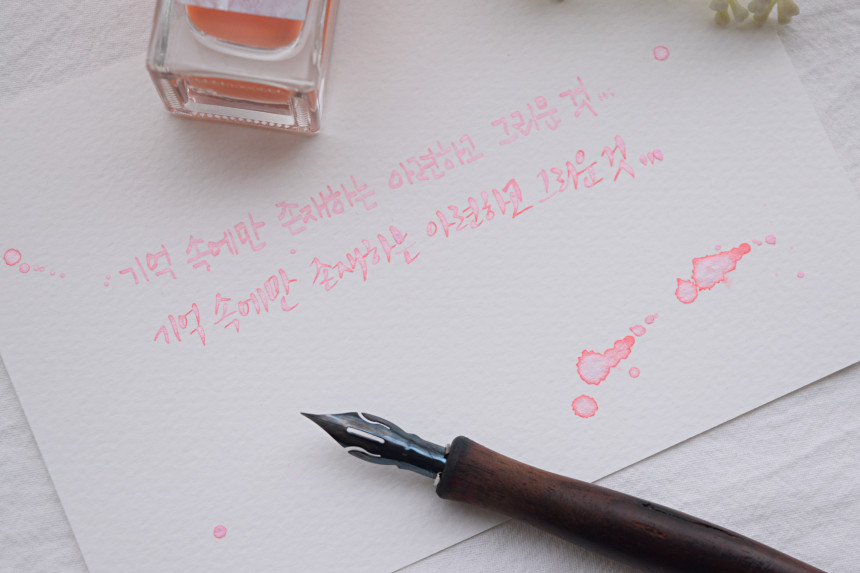 기억 속에만 존재하는 아련하고 그리운 것...
기억 속에만 존재하는 아련하고 그리운 것...